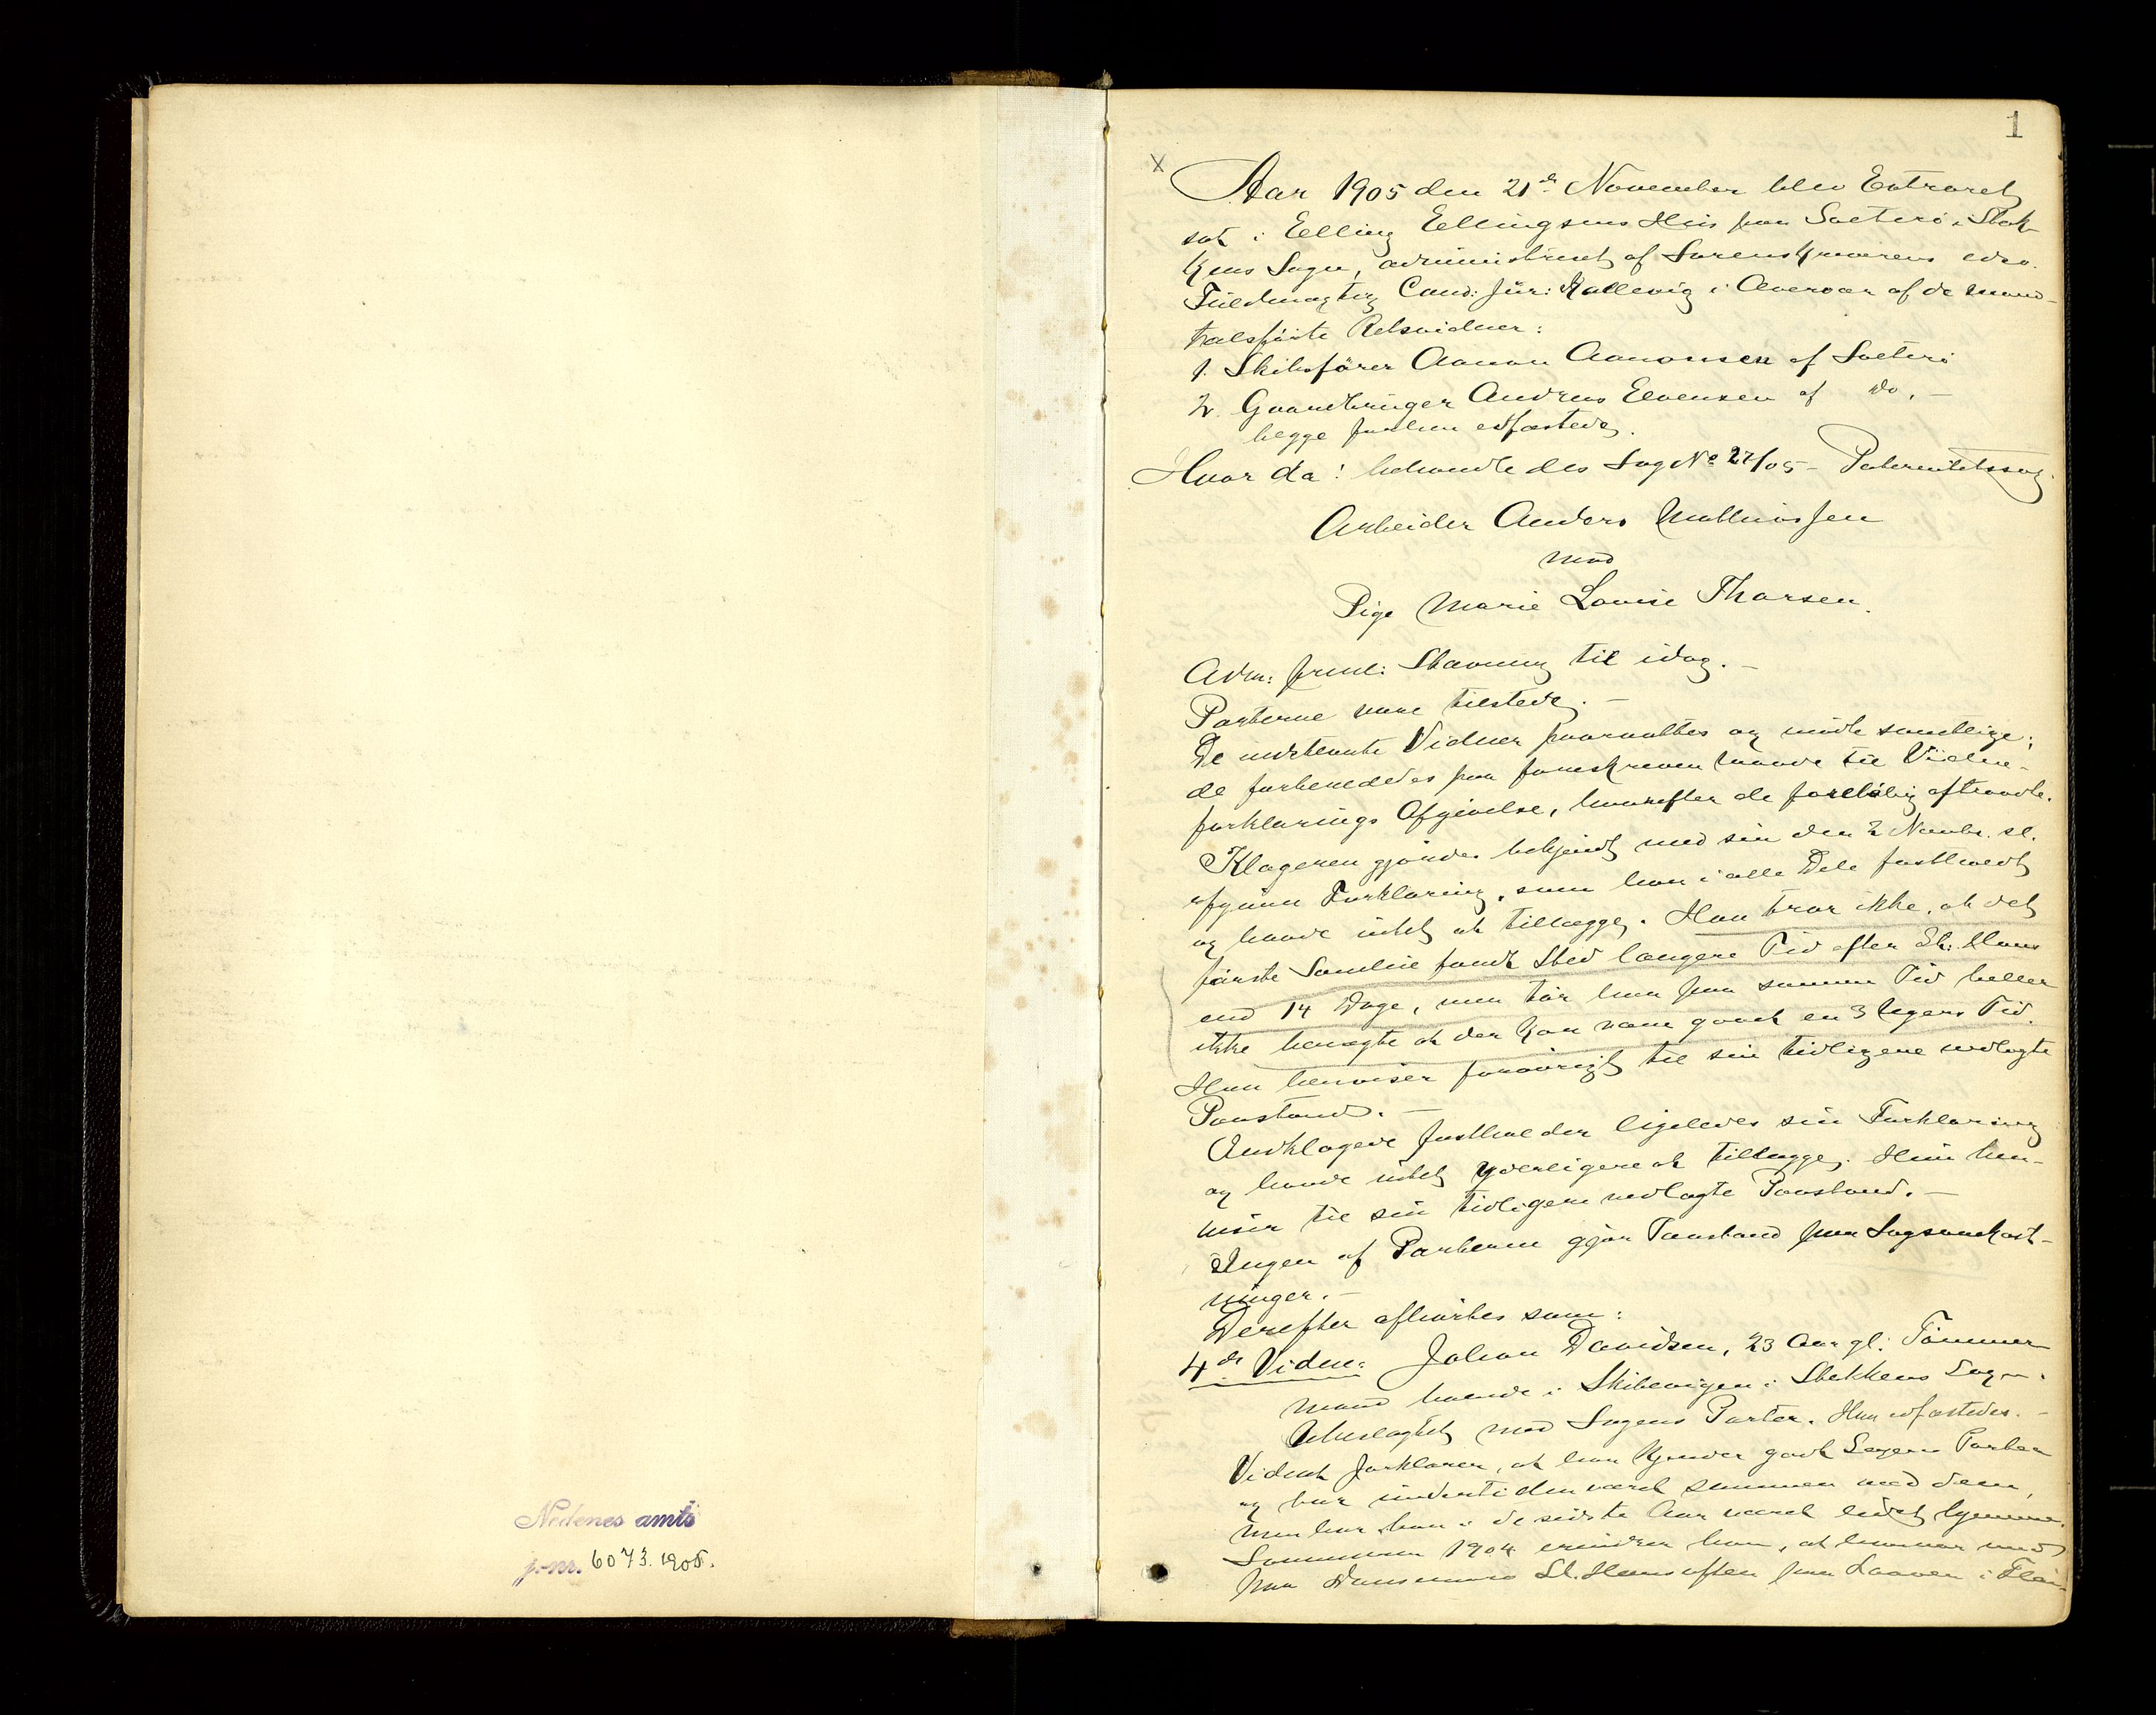 Nedenes amts
j.-nr. 6073. 1905.
1
X
Aar 1905 den 21de November blev Extraret
sat i Elling Ellingsens Hus paa Sæterø i Stok-
kens Sogn, administreret af Sorenskriverens edsv.
Fuldmægtig Cand: jur: Kallevig i Overvær af de mand-
talsførte Retsvidner:
1. Skibsfører Aanon Aanonsen af Sæterø
2. Gaardbruger Andreas Evensen af Do. -
begge forhen edfæstede.
Hvor da: behandledes Sag No 27/05 - Paternitetssag
Arbeider Anders Mathiassen
mod
Pige Marie Louise Thorsen.
Adm: freml: Stævning til idag. -
Parterne vare tilstede. -
De indstevnte Vidner paaraabtes og mødte samtlige;
de forberededes paa foreskreven Maade til Vidne-
forklarings Afgivelse, hvorefter de foreløbig aftraadte.
Klageren gjordes bekjendt med sin den 2 Novbr. sl.
afgivne Forklaring, som han i alle Dele fastholdt
og havde intet at tillægge. Han tror ikke, at det
første Samleie fandt Sted længere Tid efter St: Hans
end 14 Dage, men tør han paa samme Tid heller
ikke benegte at der kan være gaaet en 3 Ugers Tid.
Han henviser forøvrigt til sin tidligere nedlagte
Paastand. -
Indklagede fastholder ligeledes sin Forklaring
og havde intet yderligere at tillægge. Hun hen-
viser til sin tidligere nedlagte Paastand. -
Ingen af Parterne gjør Paastand paa Sagsomkost-
ninger. -
Derefter afhørtes som:
4de Vidne: Johan Davidsen, 23 Aar gl. Tømmer-
mand boende i Skibevigen i Stokkens Sogn.
Ubeslægtet med Sagens Parter. Han edfæstedes. -
Vidnet forklarer, at han kjender godt Sagens Parter
og har undertiden været sammen med dem,
men har han i de sidste Aar været lidet hjemme.
Sommeren 1904 erindrer han, at han var med
paa Dansemoro St. Hansaften paa Laaven i